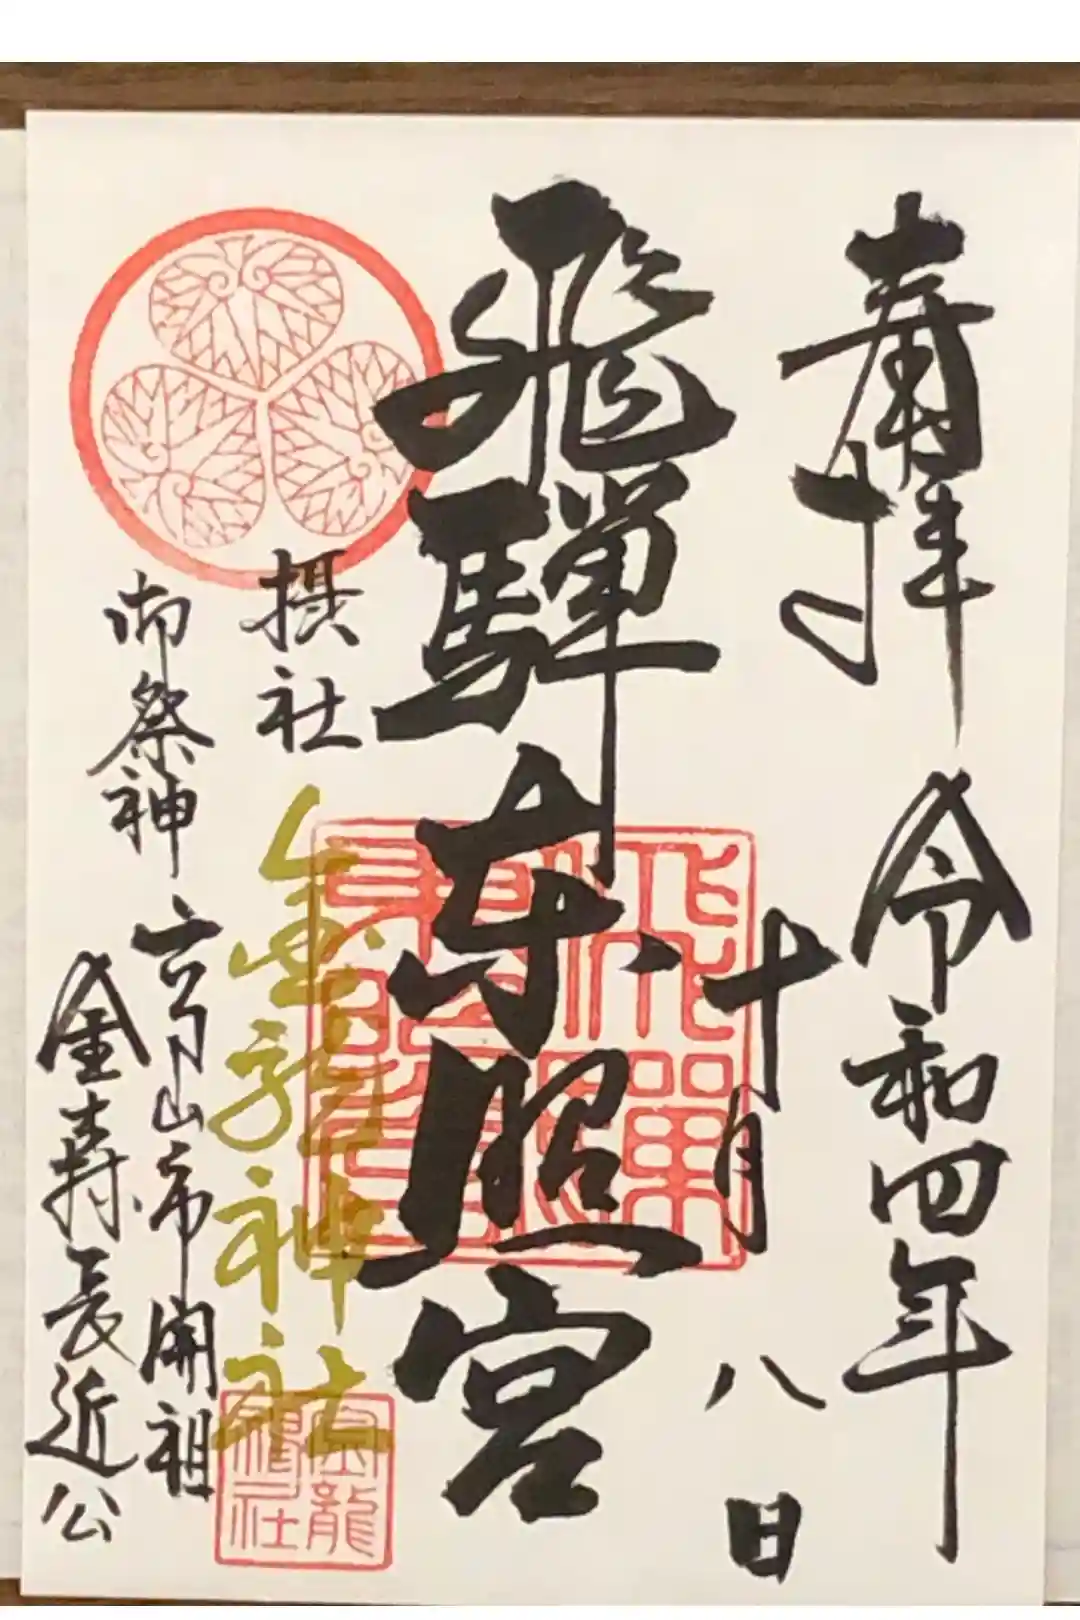 奉拝
令和四年
十月八日
飛騨東照宮
摂社
金龍神社
御祭神
高山市開祖
金森長近公
金龍神社